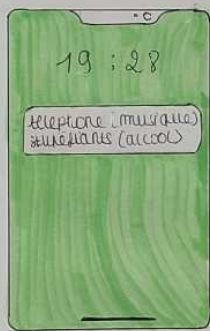 19 : 28
téléphone (musique)
stupéfiants (alcool)